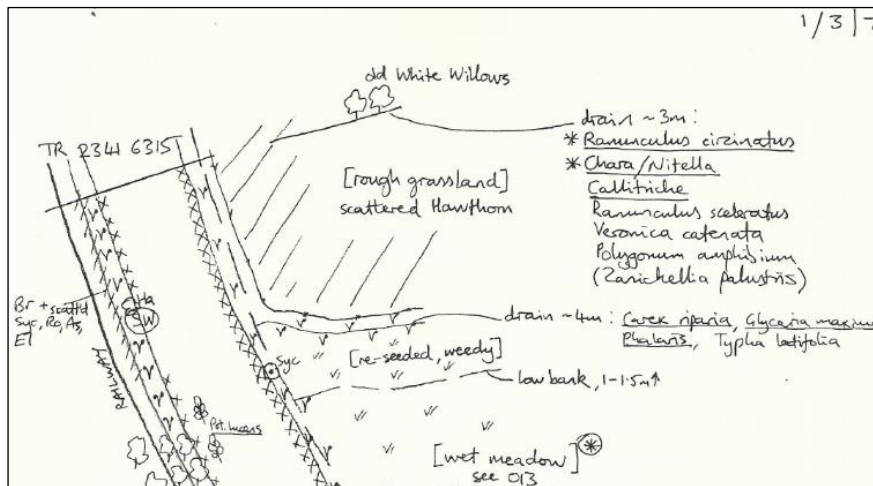 1/3/7
old White Willows
drain ~3m :
* Ranunculus circinatus
* Chara/Nitella
Callitriche
Ranunculus sceleratus
Veronica catenata
Polygonum amphibium
(Zanichellia palustris)
TR 2341 6315
[rough grassland]
scattered Hawthorn
Br + scattd
Syc, Ro, As,
El
Ha
SW
RAILWAY
drain ~4m : Carex riparia, Glyceria maxima
Phalaris, Typha latifolia
[re-seeded, weedy]
Syc
low bank, 1-1.5m↑
Pot. lucens
[wet meadow] *
see 013